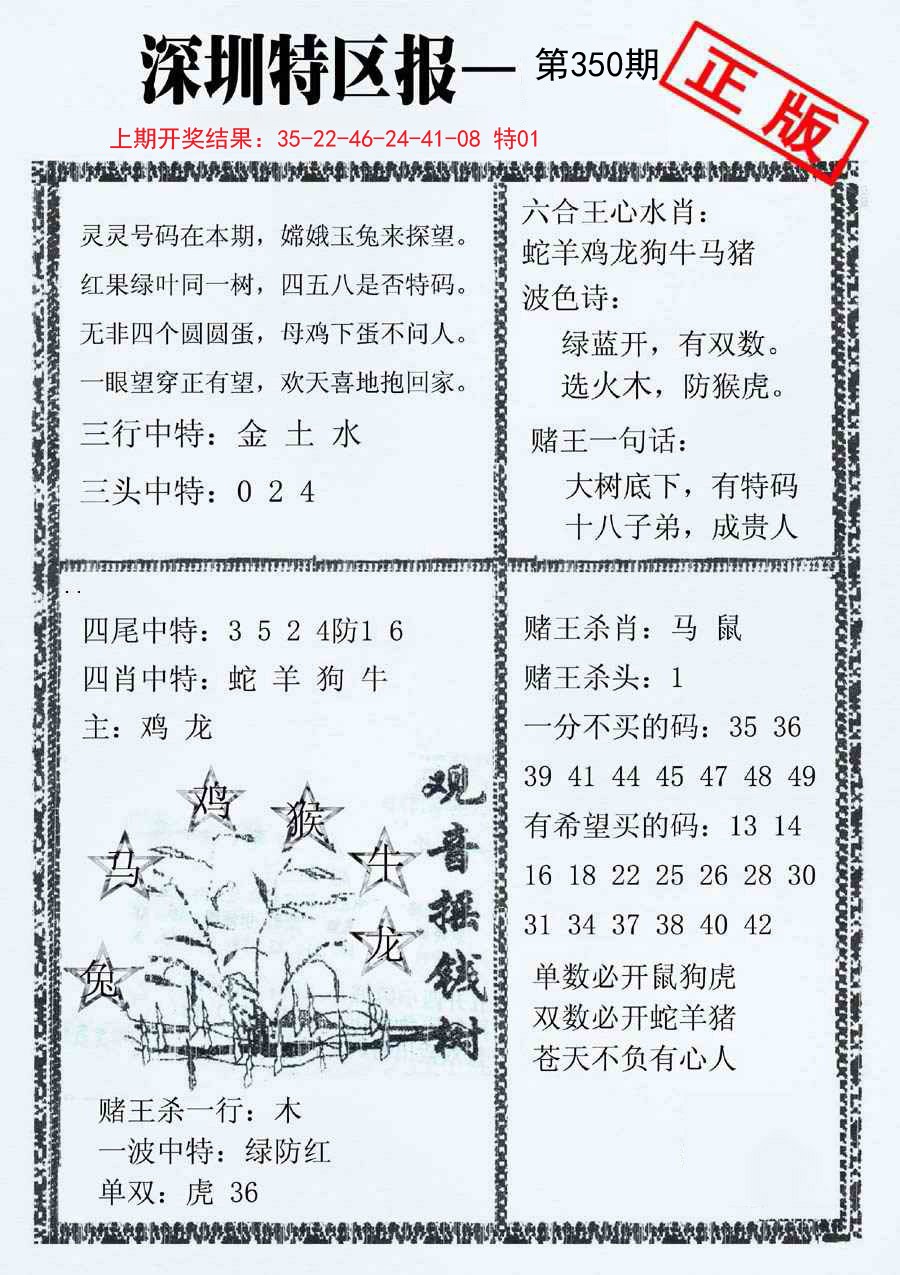 深圳特区报—
第350期
正版
上期开奖结果：35-22-46-24-41-08 特01
灵灵号码在本期，嫦娥玉兔来探望。
红果绿叶同一树，四五八是否特码。
无非四个圆圆蛋，母鸡下蛋不问人。
一眼望穿正有望，欢天喜地抱回家。
三行中特：金 土 水
三头中特：0 2 4
六合王心水肖：
蛇羊鸡龙狗牛马猪
波色诗：
绿蓝开，有双数。
选火木，防猴虎。
赌王一句话：
大树底下，有特码
十八子弟，成贵人
四尾中特：3 5 2 4防1 6
四肖中特：蛇 羊 狗 牛
主：鸡 龙
鸡
猴
马
牛
龙
兔
观音摇钱树
赌王杀一行：木
一波中特：绿防红
单双：虎 36
赌王杀肖：马 鼠
赌王杀头：1
一分不买的码：35 36
39 41 44 45 47 48 49
有希望买的码：13 14
16 18 22 25 26 28 30
31 34 37 38 40 42
单数必开鼠狗虎
双数必开蛇羊猪
苍天不负有心人